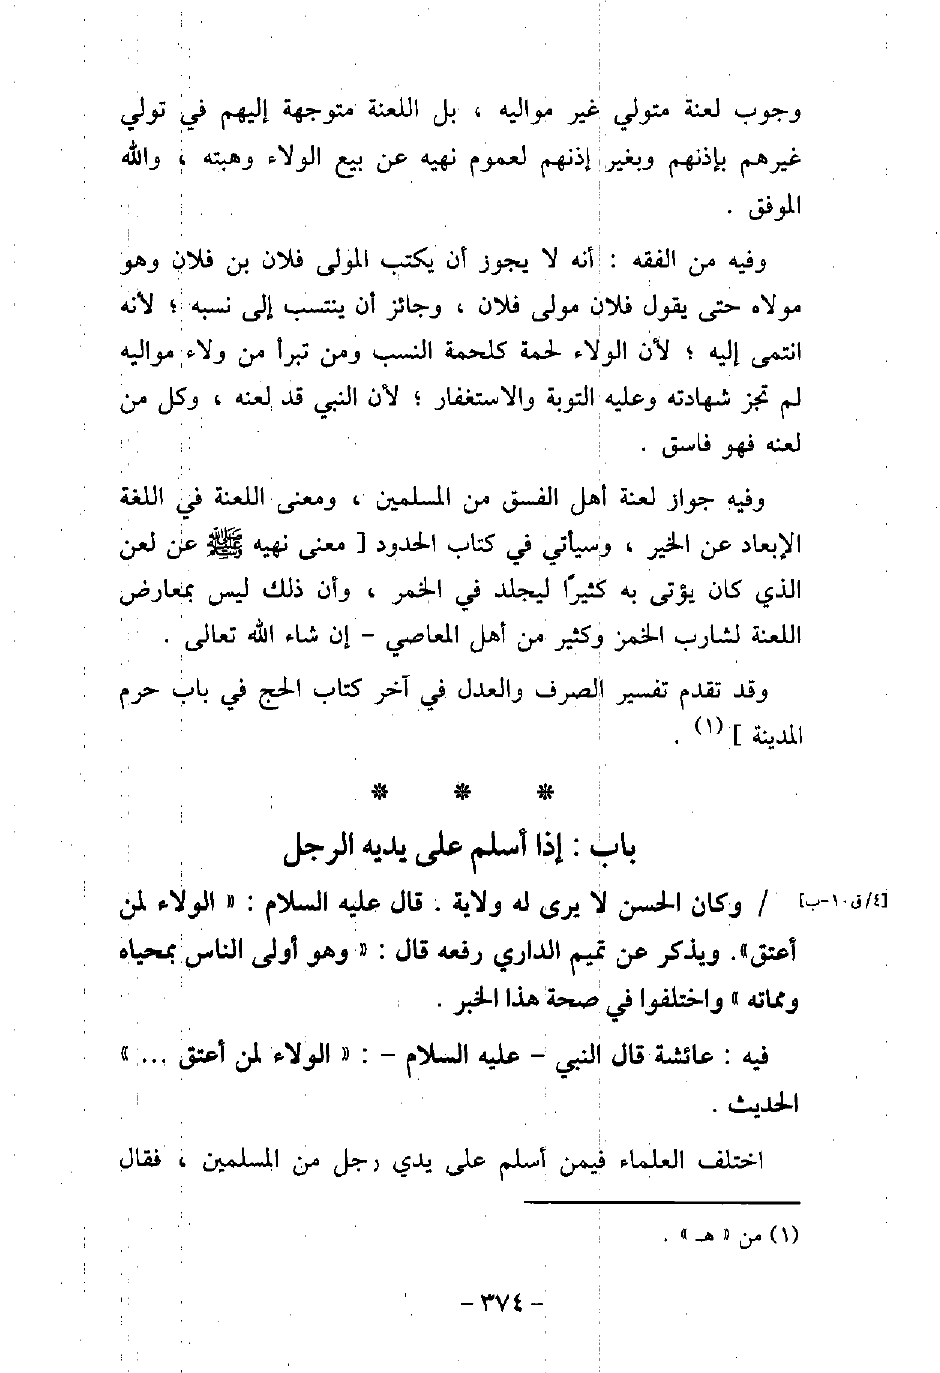 وجوب لعنة متولي غير مواليه ، بل اللعنة متوجهة إليهم في تولي
غيرهم بإذنهم وبغير إذنهم لعموم نهيه عن بيع الولاء وهبته ، والله
الموفق .
وفيه من الفقه : أنه لا يجوز أن يكتب المولى فلان بن فلان وهو
مولاه حتى يقول فلان مولى فلان ، وجائز أن ينتسب إلى نسبه ؛ لأنه
انتمى إليه ؛ لأن الولاء لحمة كلحمة النسب ومن تبرأ من ولاء مواليه
لم تجز شهادته وعليه التوبة والاستغفار ؛ لأن النبي قد لعنه ، وكل من
لعنه فهو فاسق .
وفيه جواز لعنة أهل الفسق من المسلمين ، ومعنى اللعنة في اللغة
الإبعاد عن الخير ، وسيأتي في كتاب الحدود [ معنى نهيه ﷺ عن لعن
الذي كان يؤتى به كثيرًا ليجلد في الخمر ، وأن ذلك ليس بمعارض
اللعنة لشارب الخمر وكثير من أهل المعاصي - إن شاء الله تعالى .
وقد تقدم تفسير الصرف والعدل في آخر كتاب الحج في باب حرم
المدينة ] (١) .
* * *
باب : إذا أسلم على يديه الرجل
[٤/ق١٠-ب] / وكان الحسن لا يرى له ولاية . قال عليه السلام : « الولاء لمن
أعتق». ويذكر عن تميم الداري رفعه قال : « وهو أولى الناس بمحياه
ومماته » واختلفوا في صحة هذا الخبر .
فيه : عائشة قال النبي - عليه السلام - : « الولاء لمن أعتق ... »
الحديث .
اختلف العلماء فيمن أسلم على يدي رجل من المسلمين ، فقال
(١) من « هـ » .
- ٣٧٤ -